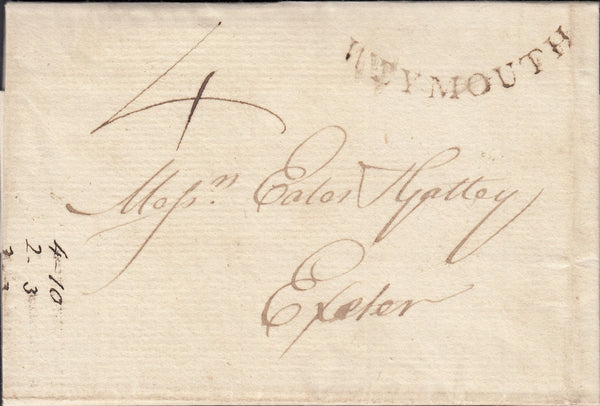 WEYMOUTH
4
Messrs. Eales & Gattey
Exeter
4-10
2.3